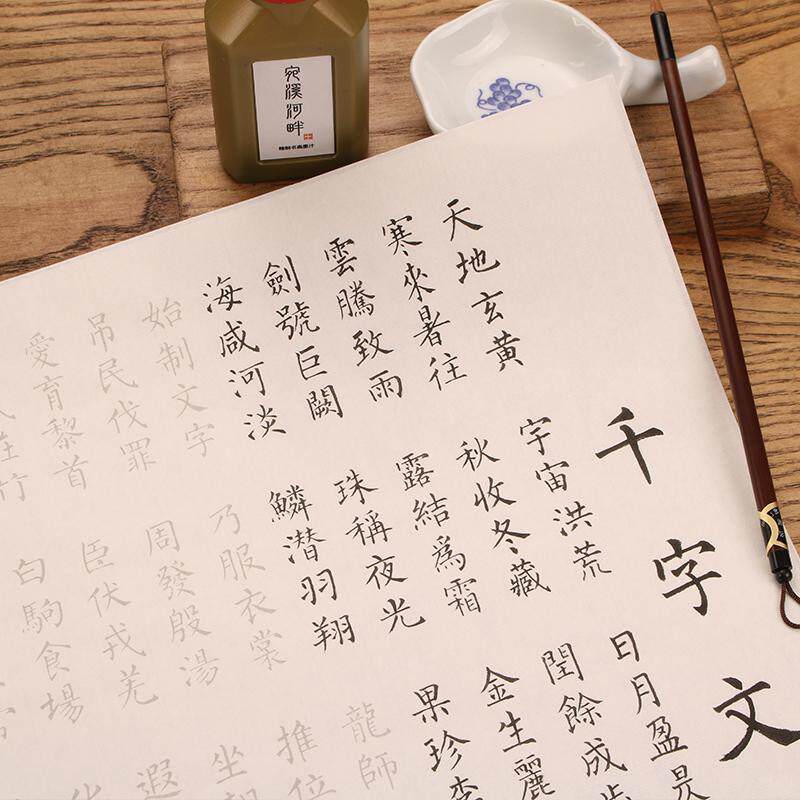 宛溪河畔
精制书画墨汁
千字文
天地玄黃 宇宙洪荒 日月盈昃
寒來暑往 秋收冬藏 閏餘成
雲騰致雨 露結爲霜 金生麗
劍號巨闕 珠稱夜光 果珍李
海咸河淡 鱗潜羽翔 龍師
始制文字 乃服衣裳 推位
吊民伐罪 周發殷湯 坐朝
愛育黎首 臣伏戎羌 遐
在竹 白駒食場 化